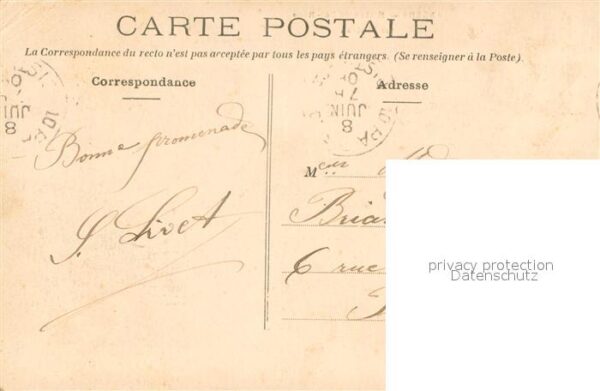 CARTE POSTALE
La Correspondance du recto n'est pas acceptée par tous les pays étrangers. (Se renseigner à la Poste).
Correspondance
Adresse
JUIN
8
Bonne promenade
S. Livet
M
6 rue
privacy protection
Datenschutz